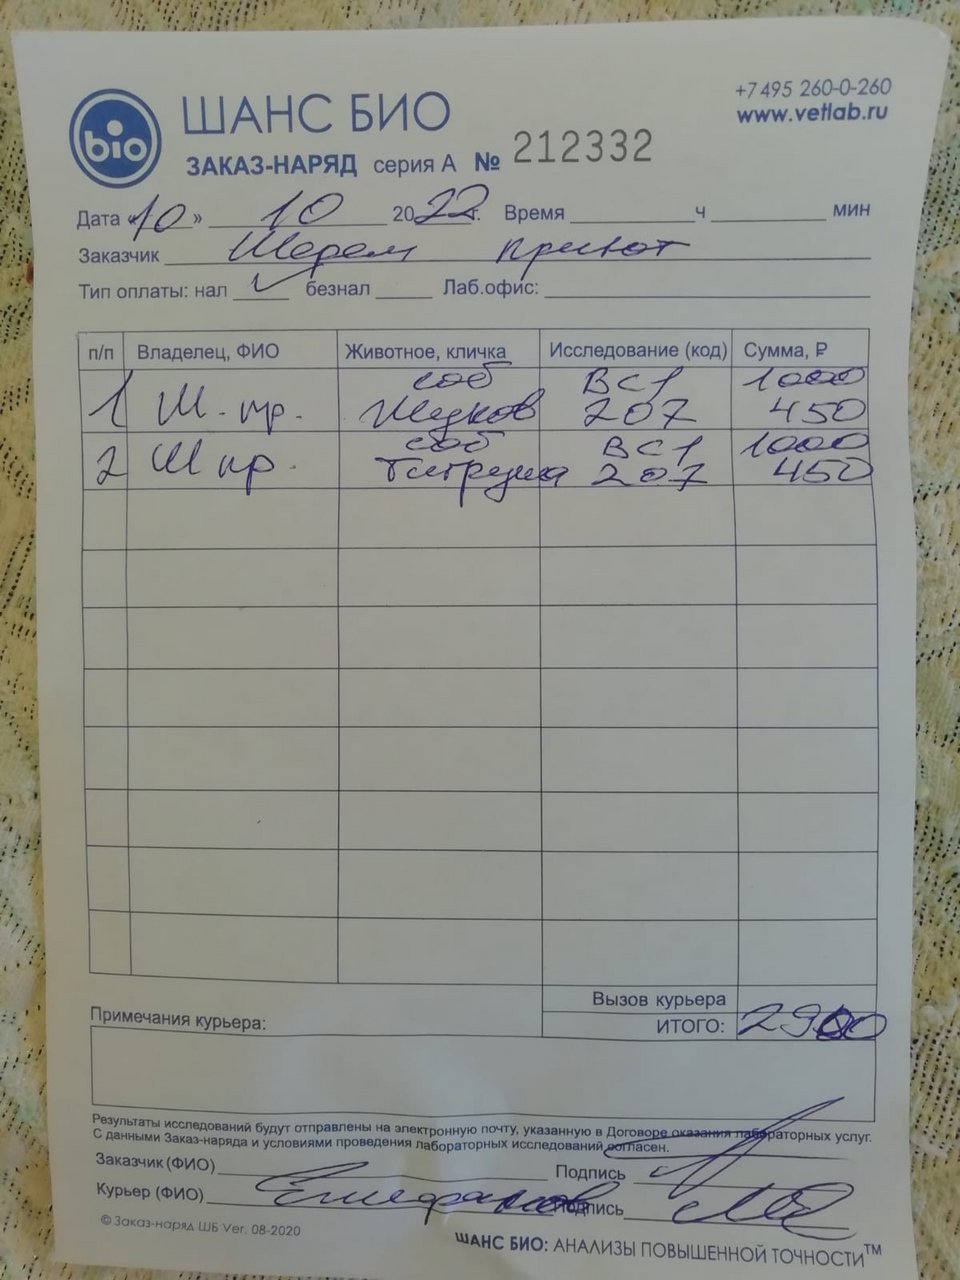 bio
ШАНС БИО
+7 495 260-0-260
www.vetlab.ru
ЗАКАЗ-НАРЯД серия А № 212332
Дата «10» 10 2022 г. Время ч мин
Заказчик Шерем приют
Тип оплаты: нал безнал Лаб.офис:
п/п Владелец, ФИО Животное, кличка Исследование (код) Сумма, ₽
соб ВС1 1000
1 Ш. пр. Жуков 207 450
соб ВС1 1000
2 Ш пр. Тигруша 207 450
Вызов курьера
Примечания курьера:
ИТОГО: 2900
Результаты исследований будут отправлены на электронную почту, указанную в Договоре оказания лабораторных услуг.
С данными Заказ-наряда и условиями проведения лабораторных исследований согласен.
Заказчик (ФИО) Подпись
Курьер (ФИО) Епифанов Подпись
© Заказ-наряд ШБ Ver. 08-2020
ШАНС БИО: АНАЛИЗЫ ПОВЫШЕННОЙ ТОЧНОСТИ™